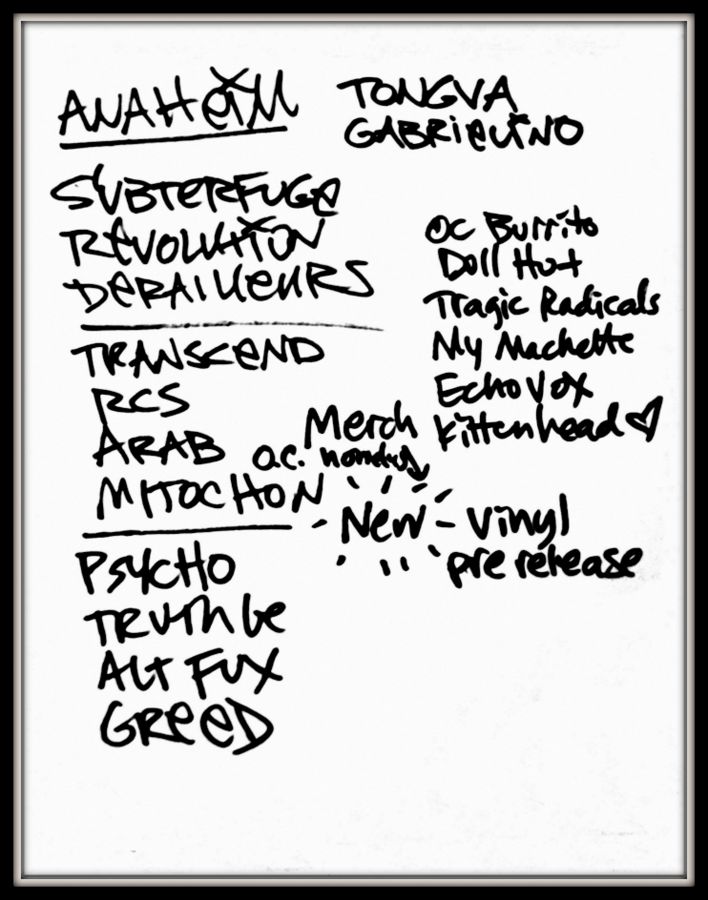 ANAHeiM
TONGVA
GABRieliNO
SUBTERFUGe
REVOLUtiON
DeRAilleuRS
TRANSCeND
RCS
ARAB
MITOCHON
PSYCHO
TRUTh be
Alt FUX
GReeD
OC Burrito
Doll Hut
Tragic Radicals
My Machette
Echo Vox
Kittenhead
Merch
o.c.
New - Vinyl
pre release